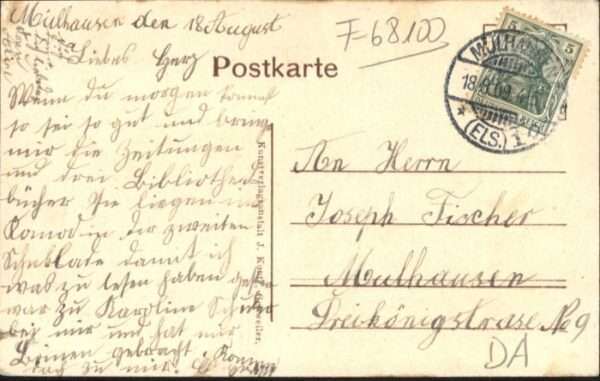 Mülhausen den 18 August
Liebes Herz
Wenn du morgen kommst
so sei so gut und bring
mir die Zeitungen
und drei Bibliothek
bücher Sie liegen im
Komod in der zweiten
Schublade damit ich
was zu lesen haben
war zu Karoline
bei mir und hat mir
Birnen gebracht. Komm
zu mir.
F-68100
Postkarte
5 5
MÜLHAUSEN
18.8.09
(ELS.) 1
Kunstverlagsanstalt J.
An Herrn
Joseph Fischer
Mülhausen
Dreikönigstrase No 9
DA